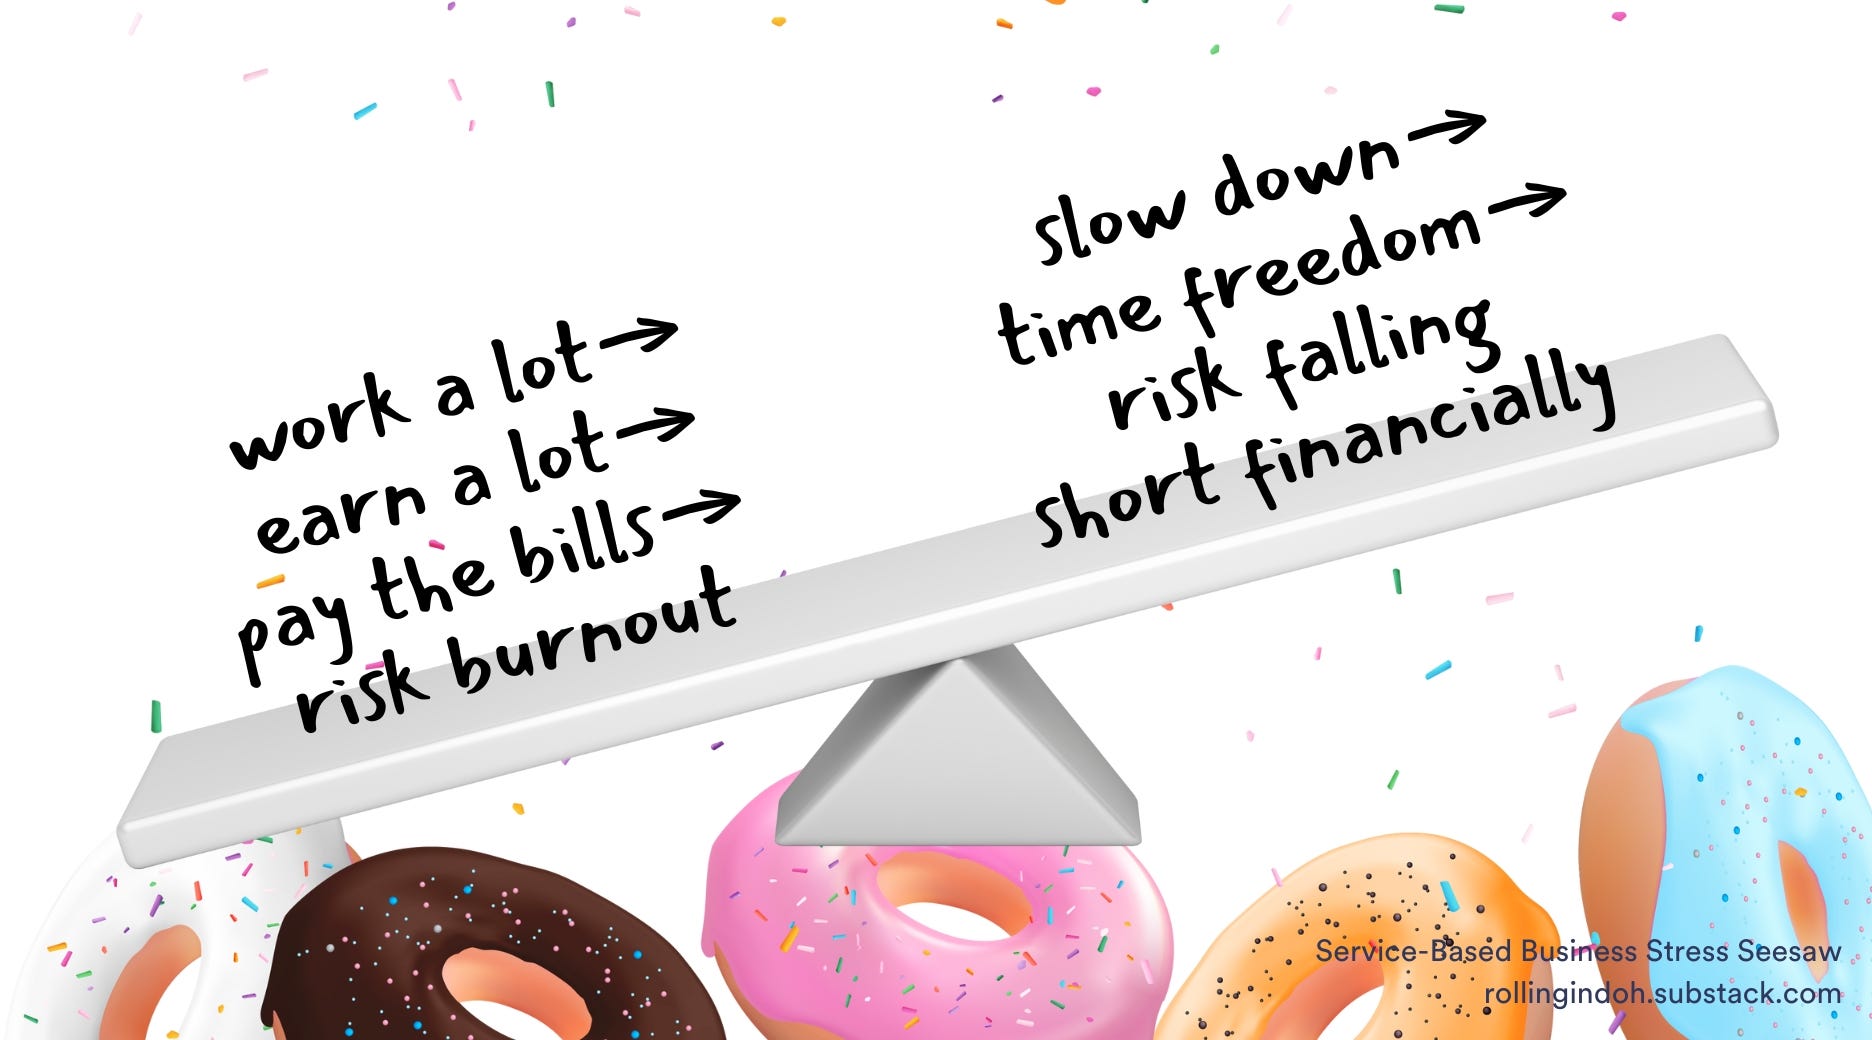 work a lot→
earn a lot→
pay the bills→
risk burnout
slow down→
time freedom→
risk falling
short financially
Service-Based Business Stress Seesaw
rollingindoh.substack.com